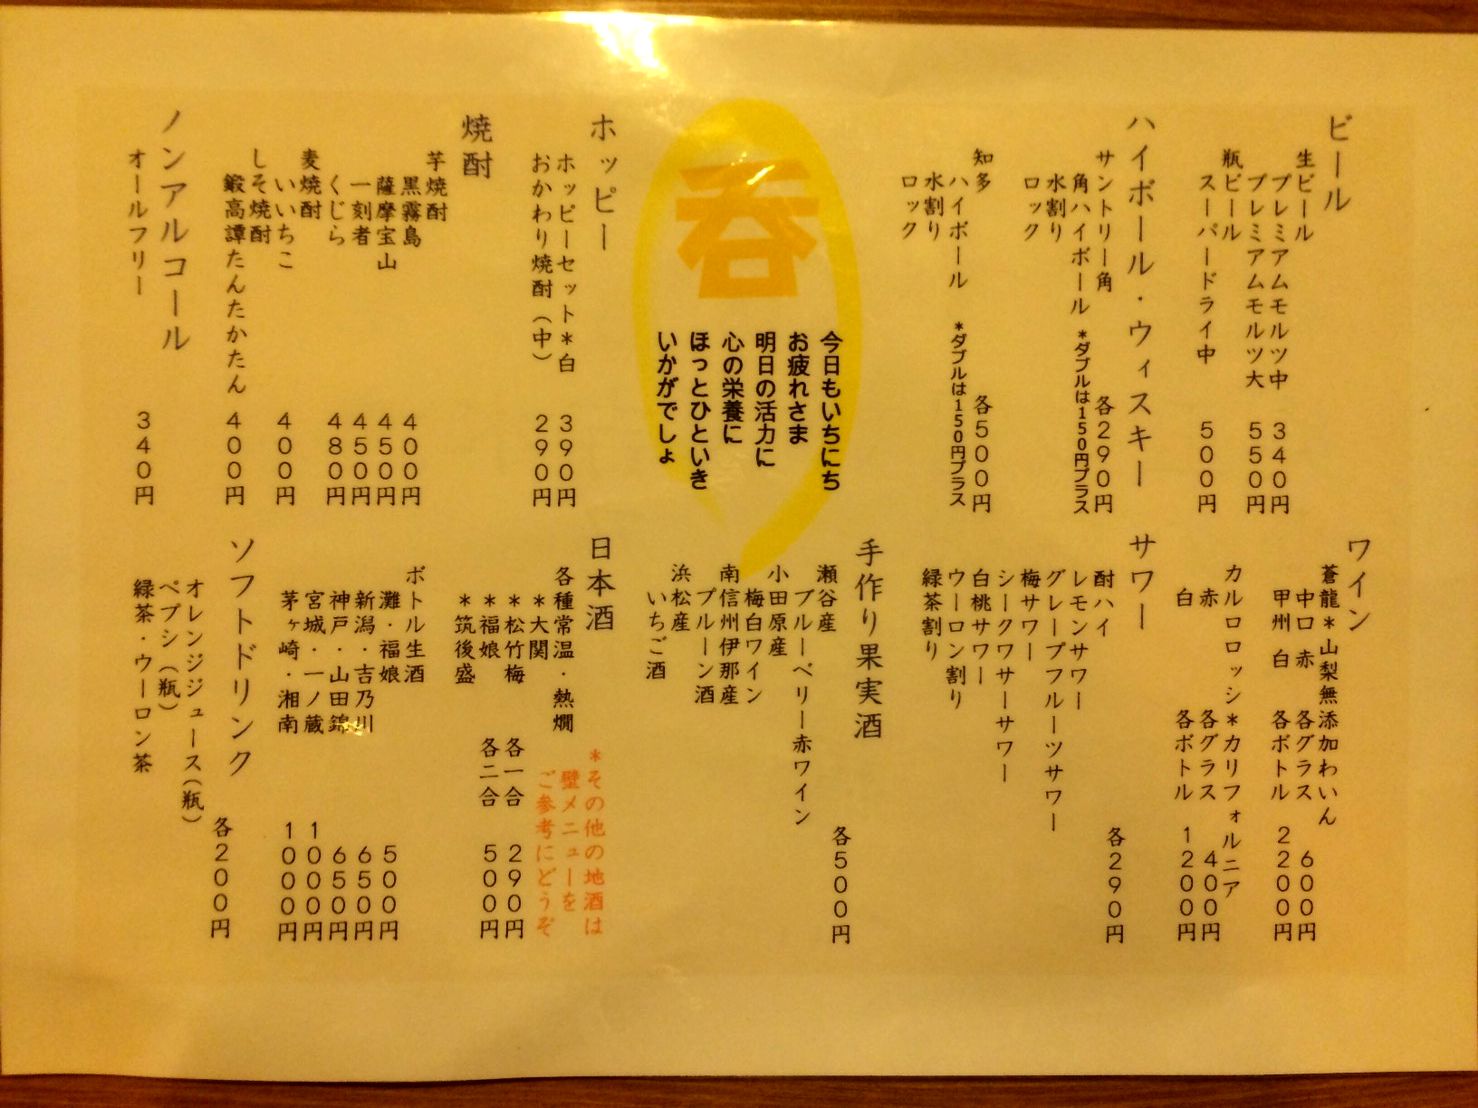 ビール
生ビール
プレミアムモルツ中 340円
プレミアムモルツ大 550円
瓶ビール
スーパードライ中 500円
ハイボール・ウィスキー
サントリー角 各290円
角ハイボール *ダブルは150円プラス
水割り
ロック
知多 各500円
ハイボール *ダブルは150円プラス
水割り
ロック
呑
今日もいちにち
お疲れさま
明日の活力に
心の栄養に
ほっとひといき
いかがでしょ
ホッピー
ホッピーセット*白 390円
おかわり焼酎(中) 290円
焼酎
芋焼酎
黒霧島 400円
薩摩宝山 450円
一刻者 450円
くじら 480円
麦焼酎
いいちこ 400円
しそ焼酎
鍛高譚たんたかたん 400円
ノンアルコール
オールフリー 340円
ワイン
蒼龍*山梨無添加わいん
中口 赤 各グラス 600円
甲州 白 各ボトル 2200円
カルロロッシ*カリフォルニア
赤 各グラス 400円
白 各ボトル 1200円
サワー
酎ハイ 各290円
レモンサワー
グレープフルーツサワー
梅サワー
シークワサーサワー
白桃サワー
ウーロン割り
緑茶割り
手作り果実酒
各500円
瀬谷産
ブルーベリー赤ワイン
小田原産
梅白ワイン
南信州伊那産
プルーン酒
浜松産
いちご酒
日本酒
*その他の地酒は
壁メニューを
ご参考にどうぞ
各種常温・熱燗
*大関
*松竹梅 各一合 290円
*福娘 各二合 500円
*筑後盛
ボトル生酒
灘・福娘 500円
新潟・吉乃川 650円
神戸・山田錦 650円
宮城・一ノ蔵 1000円
茅ヶ崎・湘南 1000円
ソフトドリンク
各200円
オレンジジュース(瓶)
ペプシ(瓶)
緑茶・ウーロン茶